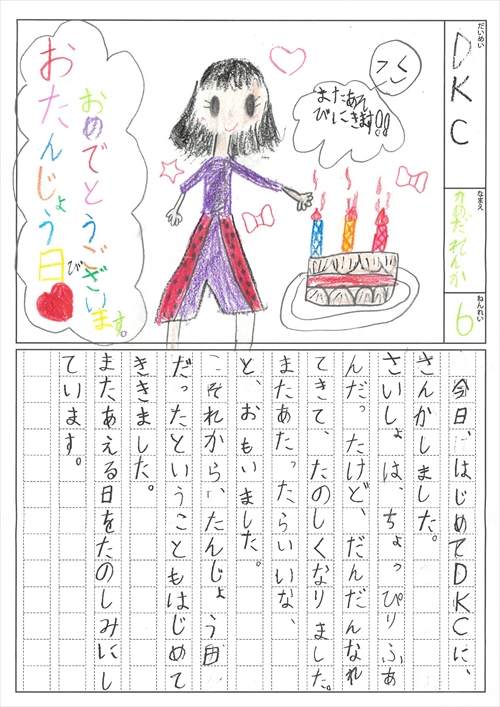 だいめい
DKC
なまえ
ねんれい
6
またあそ
びにきます!!
おめでとうございます。
おたんじょう日
び
今日、はじめてDKCに、
さんかしました。
さいしょは、ちょっぴりふあ
んだったけど、だんだんなれ
てきて、たのしくなりました。
またあたったらいいな、
と、おもいました。
それから、たんじょう日
だったということもはじめて
ききました。
またあえる日をたのしみにし
ています。